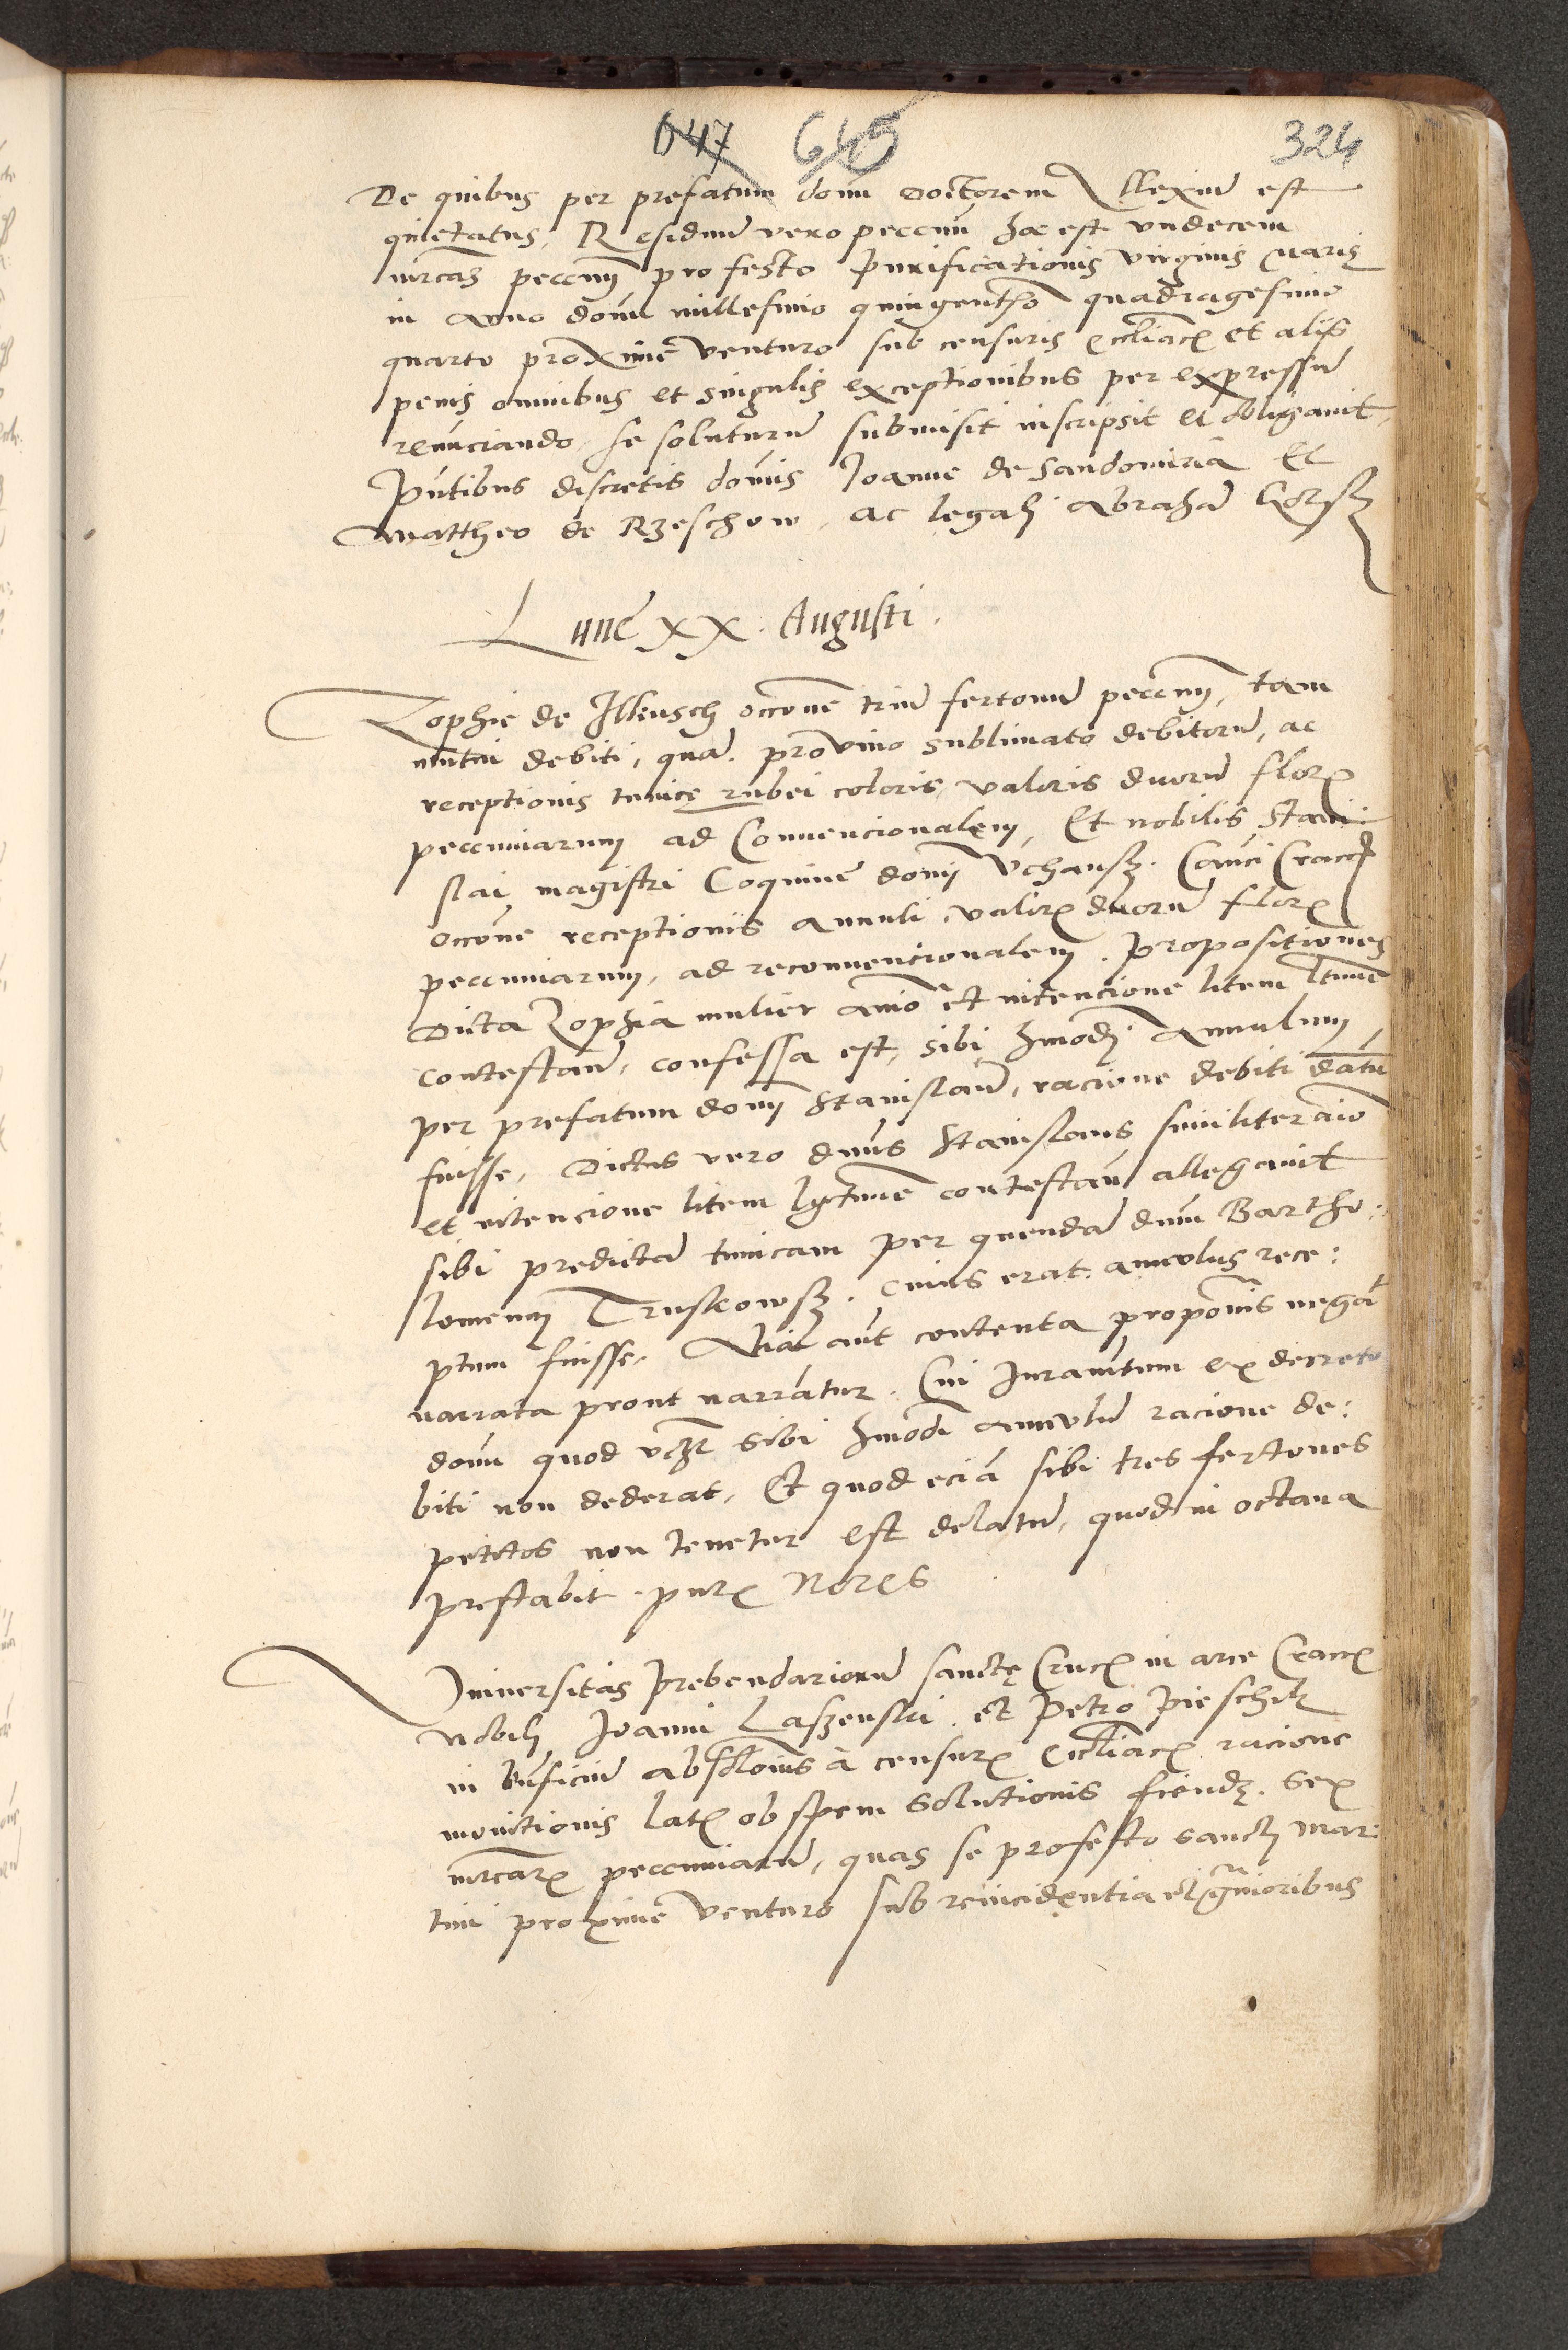 647 645 324
De quibus per prefatum domi Doctorem Allexium est
quietatus, Residuum vero peccunii hoc est vndecem
mrcas peccunij pro festo Purificationis virginis Marie
in Anno domi millesimo quingentho quadragesimo
quarto proxime venturo sub censuris eccliac et aliis
penis omnibus et singulis exceptionibus per expressum
renunciando, se soluturum submisit inscripsit et obligauit,
Pntibus discretis domis Joanne de Sandomiria Et
Mattheo de Rzeschow, ac legali Abraham Gorsz
Lune xx. Augusti.
Zophie de Ilkusch occone trium fertonum peccunij, tam
mutui debiti, quam pro vino sublimato debitorum, ac
receptionis tunice rubei coloris, valoris duorum flor
peccuniarum ad Conuencionalem, Et nobilis Stani:
slai magistri Coquine domi Vchansz. Canci Cracc
occone receptionis Annuli, valoris duorum flor
peccuniarum, ad reconuencionalem. propositiones
Dicta Zophia mulier animo et intencione litem ltime
contestan, confessa est, sibi hmodi Annulum
per prefatum domi Stanislaum, racione debiti datum
fuisse, Dictus vero dnus Stanislaus similiter aio
et intencione litem lgtime contestan allegauit
sibi predictam tunicam per quendam dnum Bartho:
lomeum Truskowsz. cuius erat annulus rece:
ptum fuisse. Alia aut contenta proponis negat
narrata prout narrantur. Cui Juramtum ex decreto
domi quod vtz sibi hmodi annulum racione de:
biti non dederat, Et quod eciam sibi tres fertones
petitos non tenetur est delatum, quod in octaua
prestabit. pntz Nores
Vniuersitas prebendariorum sancte Crucis in arce Cracc
Nobili Joanni Laszenski et Petro Pieschik
in bnficium absolonis à censur eccliac racione
monitionis lat ob spem solutionis fiende. sex
mrcar peccuniarum, quas se pro festo sancti Mar:
tini proxime venturo sub reincidentia et grauioribus